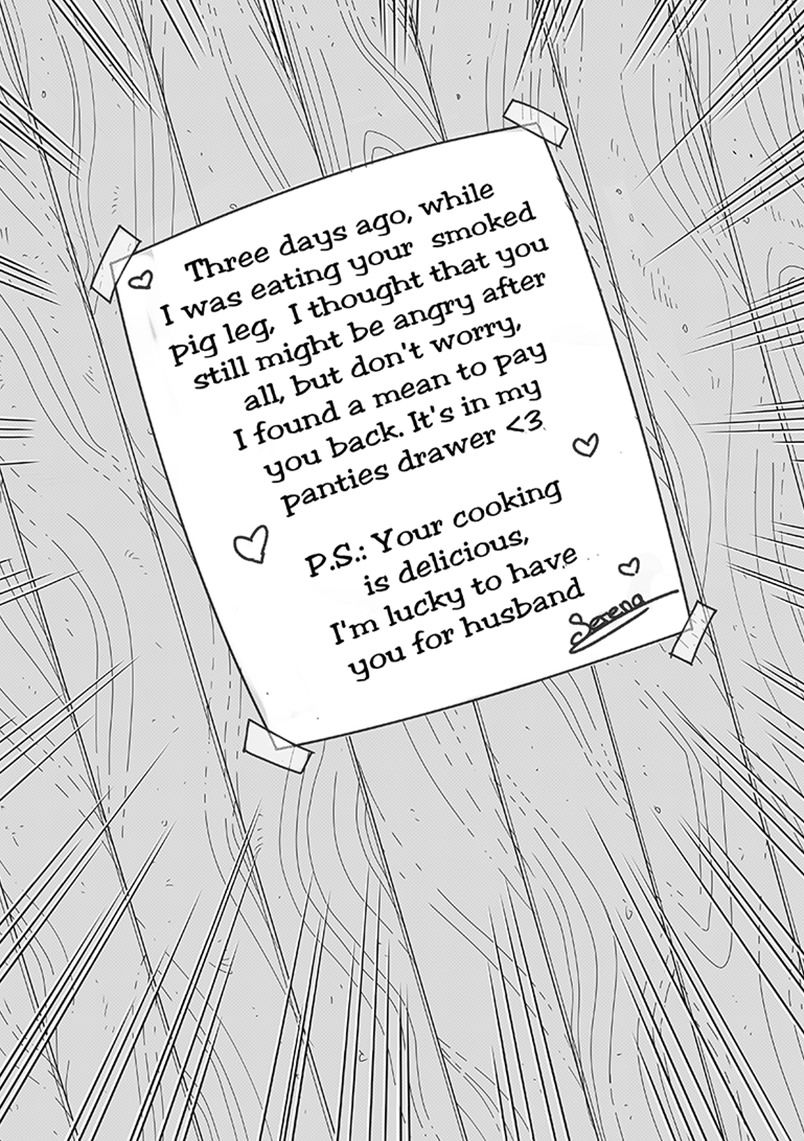 Three days ago, while
I was eating your smoked
pig leg, I thought that you
still might be angry after
all, but don't worry,
I found a mean to pay
you back. It's in my
panties drawer <3
P.S.: Your cooking
is delicious,
I'm lucky to have
you for husband
Serena